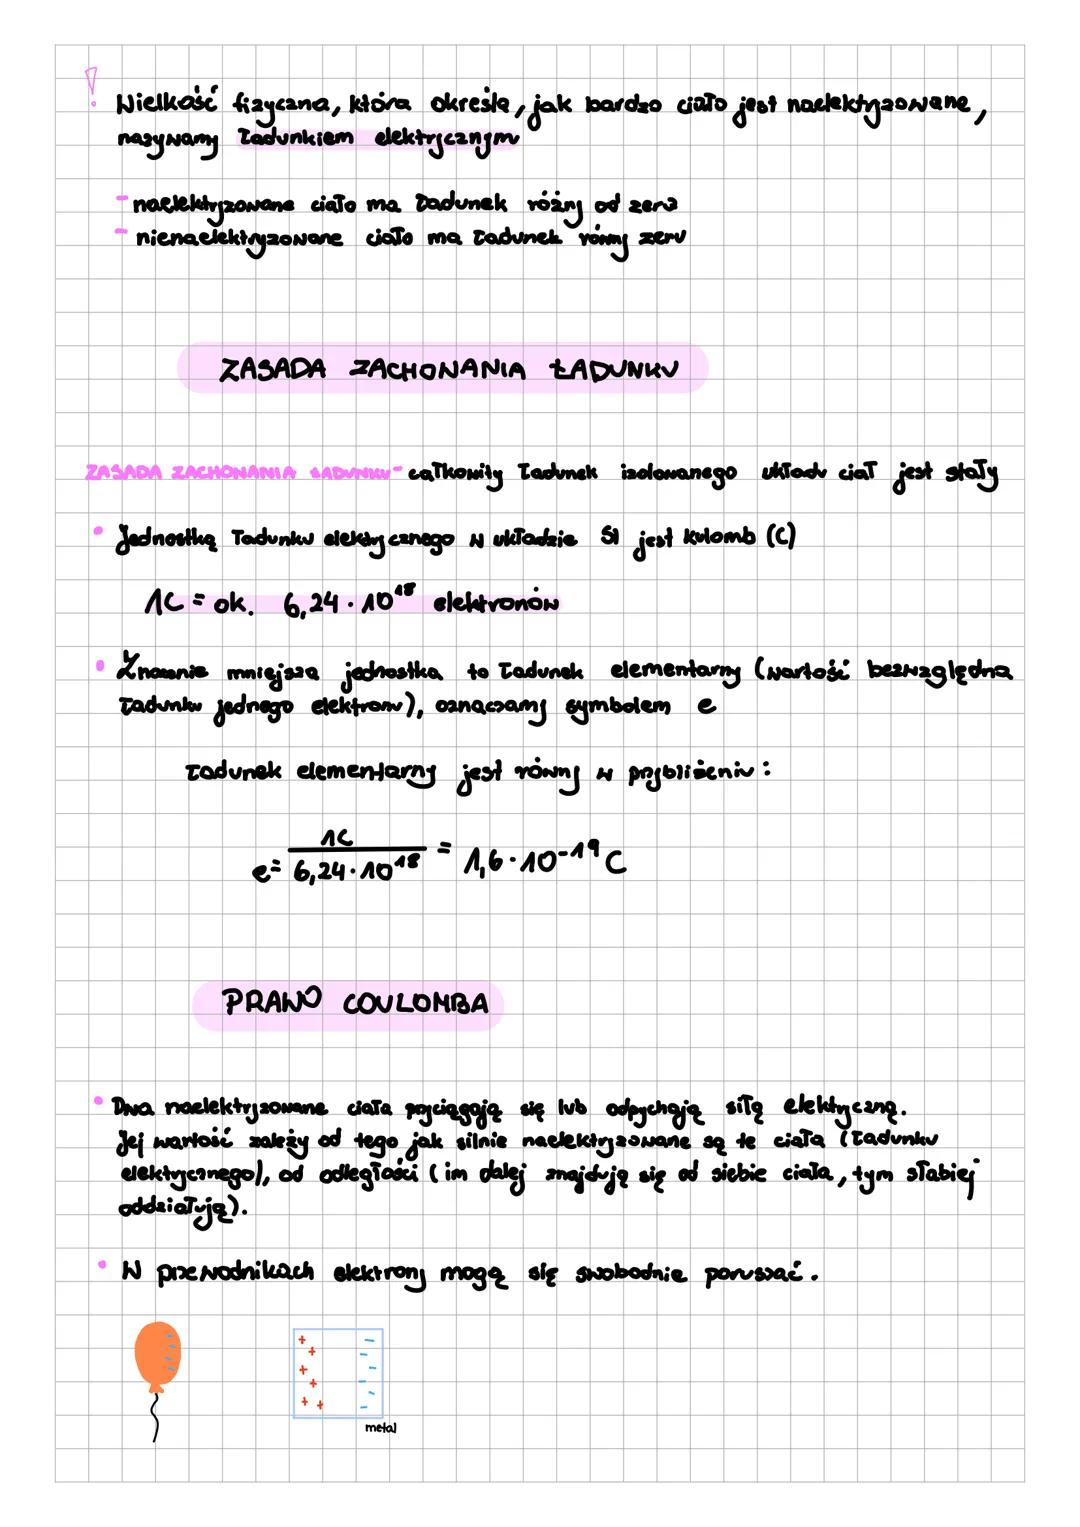 ! Wielkość fizyczna, która określa, jak bardzo ciało jest naelektryzowane,
nazywamy ładunkiem elektrycznym
- naelektryzowane ciało ma ładunek różny od zera
- nienaelektryzowane ciało ma ładunek równy zeru
ZASADA ZACHOWANIA ŁADUNKU
ZASADA ZACHOWANIA ŁADUNKU - całkowity ładunek izolowanego układu ciał jest stały
• Jednostką ładunku elektrycznego w układzie SI jest kulomb (C)
1C = ok. 6,24 · 10¹⁸ elektronów
• Znacznie mniejsza jednostka to ładunek elementarny (wartość bezwzględna
ładunku jednego elektronu), oznaczamy symbolem e
ładunek elementarny jest równy w przybliżeniu:
e = 1C / 6,24 · 10¹⁸ = 1,6 · 10⁻¹⁹ C
PRAWO COULOMBA
• Dwa naelektryzowane ciała przyciągają się lub odpychają siłą elektryczną.
Jej wartość zależy od tego jak silnie naelektryzowane są te ciała (ładunku
elektrycznego), od odległości (im dalej znajdują się od siebie ciała, tym słabiej
oddziałują).
• W przewodnikach elektrony mogą się swobodnie poruszać.
metal